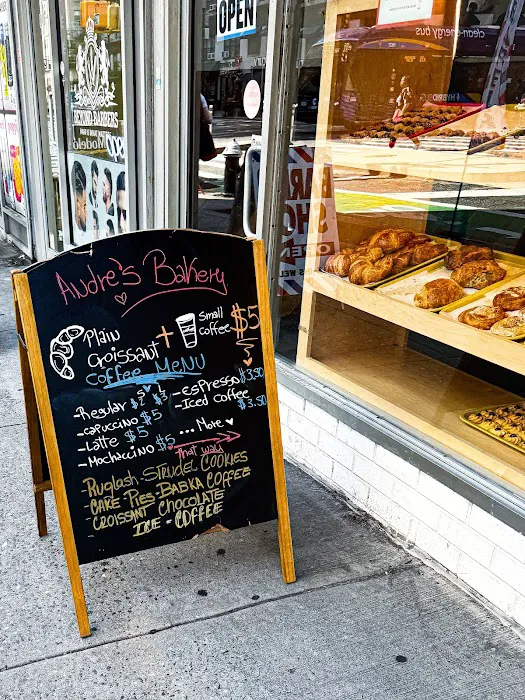 OPEN
clean-energy bus
HYBRID
BEYOND BARBERS
Andre's Bakery
Plain
Croissant
+
Small
coffee
$5
Coffee MENU
-Regular
-Capuccino $5
-Latte $5
-Mochaccino $5
-Espresso $3.50
-Iced coffee $3.50
...More
That way
-Ruglash-Strudel COOKIES
CAKE PIES-BABKA COFFEE
-CROISSANT CHOCOLATE
ICE-COFFEE